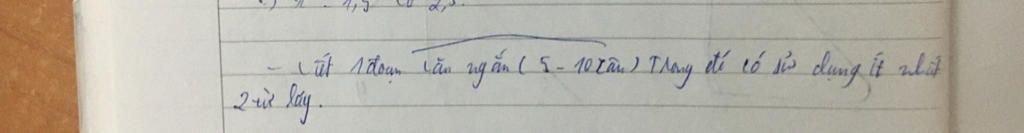 - Viết 1 đoạn văn ngắn (5 - 10 câu) Trong đó có sử dụng ít nhất
2 từ láy.